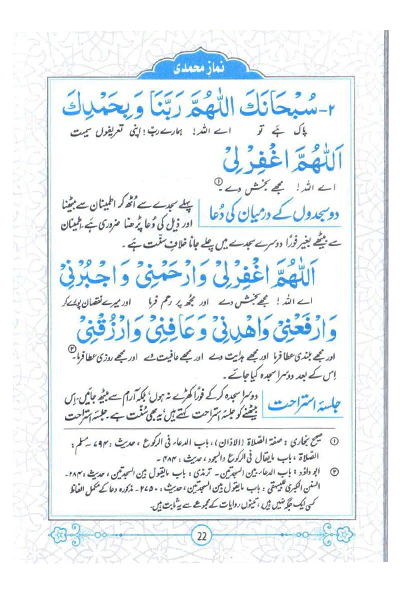 نماز محمدی
۲- سُبْحَانَكَ اللّٰهُمَّ رَبَّنَا وَبِحَمْدِكَ
پاک ہے تو اے اللہ! ہمارے رب! اپنی تعریفوں سمیت
اَللّٰهُمَّ اغْفِرْ لِىْ
اے اللہ! مجھے بخش دے۔ ①
دو سجدوں کے درمیان کی دُعا
پہلے سجدے سے اُٹھ کر اطمینان سے بیٹھنا
اور ذیل کی دُعا پڑھنا ضروری ہے، اطمینان
سے بیٹھے بغیر فوراً دوسرے سجدے میں چلے جانا خلافِ سنّت ہے۔
اَللّٰهُمَّ اغْفِرْ لِىْ وَارْحَمْنِىْ وَاجْبُرْنِىْ
اے اللہ! مجھے بخش دے اور مجھ پر رحم فرما اور میرے نقصان پورے کر
وَارْفَعْنِىْ وَاهْدِنِىْ وَعَافِنِىْ وَارْزُقْنِىْ
اور مجھے بلندی عطا فرما اور مجھے ہدایت دے اور مجھے عافیت دے اور مجھے روزی عطا فرما۔ ②
اس کے بعد دوسرا سجدہ کیا جائے۔
جلسۂ استراحت
دوسرا سجدہ کر کے فوراً کھڑے نہ ہوں بلکہ آرام سے بیٹھ جائیں، اس
بیٹھنے کو جلسۂ استراحت کہتے ہیں، یہ بھی سُنّت ہے۔ جلسۂ استراحت
① صحیح بخاری: صفة الصلاة (الاذان)، باب الدعاء فی الرکوع، حدیث: ۷۹۴، مسلم:
الصلاة، باب مایقال فی الرکوع والسجود، حدیث: ۴۸۴۔
② ابو داؤد: باب الدعاء بین السجدتین۔ ترمذی: باب مایقول بین السجدتین، حدیث: ۲۸۴۔
السنن الکبریٰ للبیہقی: باب مایقول بین السجدتین، حدیث: ۲۷۵۰۔ مذکورہ دعا کے مکمل الفاظ
کسی ایک جگہ نہیں ہیں، تینوں روایات کے مجموعے سے یہ ثابت ہیں۔
22